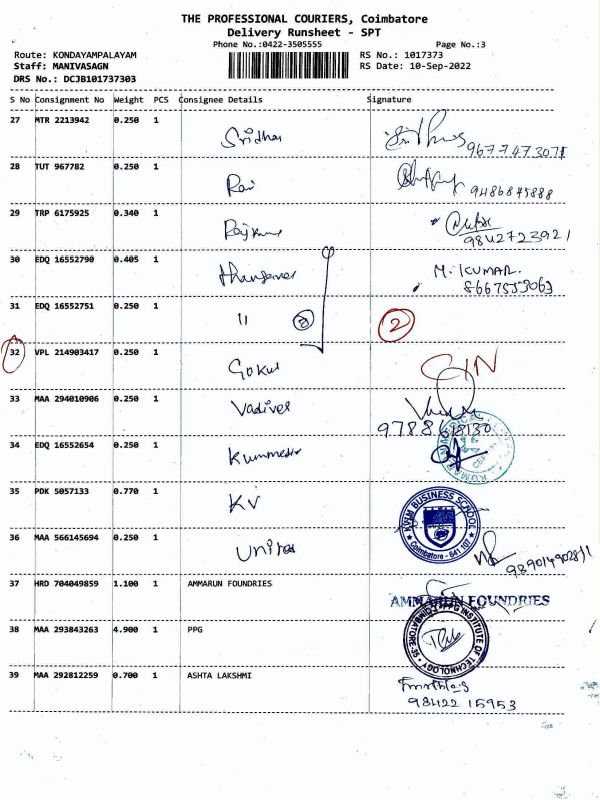 THE PROFESSIONAL COURIERS, Coimbatore
Delivery Runsheet - SPT
Phone No.:0422-3505555 Page No.:3
Route: KONDAYAMPALAYAM RS No.: 1017373
Staff: MANIVASAGN RS Date: 10-Sep-2022
DRS No.: DCJB101737303
S No Consignment No Weight PCS Consignee Details Signature
27 MTR 2213942 0.250 1 Sridhar
28 TUT 967782 0.250 1 Ravi 9486845888
29 TRP 6175925 0.340 1 Rajkumar
9842723921
30 EDQ 16552790 0.405 1 M. KUMAR
31 EDQ 16552751 0.250 1 11 2
32 VPL 214903417 0.250 1 Gokul
33 MAA 294010906 0.250 1 Vadivel
34 EDQ 16552654 0.250 1
35 PDK 5057133 0.770 1 KV
KVIM BUSINESS SCHOOL
Coimbatore - 641 107
36 MAA 566145694 0.250 1
37 HRD 704049859 1.100 1 AMMARUN FOUNDRIES
AMMARUN FOUNDRIES
38 MAA 293843263 4.900 1 PPG
PPG INSTITUTE OF TECHNOLOGY
39 MAA 292812259 0.700 1 ASHTA LAKSHMI
98422 15953